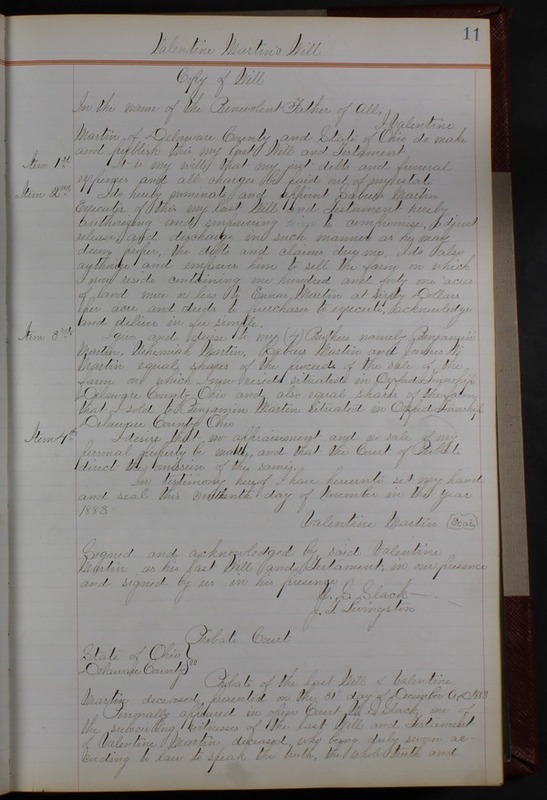 11
Valentine Martin's Will
Copy of Will
In the name of the Benevolent Father of All; I Valentine
Martin of Delaware County and State of Ohio do make
and publish this my last Will and Testament.
Item 1st It is my will that my just debts and funeral
expenses and all charges be paid out of my estate.
Item 2nd I do hereby nominate and appoint Martin
Executor of this my last Will and Testament hereby
authorizing and empowering him to compromise, adjust
release and discharge in such manner as he may
deem proper, the debts and claims due me, I do also
authorize and empower him to sell the farm on which
I now reside containing one hundred and forty one acres
of land more or less to Martin at Sixty Dollars
per acre and deeds to purchaser to execute, acknowledge
and deliver in fee simple.
Item 3rd I give and devise to my (4) Brothers namely Benjamin
Martin, Nehemiah Martin, Martin and
Martin equal shares of the proceeds of the sale of the
farm on which I now reside situated in Oxford Township
Delaware County Ohio and also equal shares of the farm
that I sold to Benjamin Martin situated in Oxford Township
Delaware County Ohio
Item 4th I desire that no appraisement and no sale of my
personal property be made, and that the Court of Probate
direct the omission of the same.
In testimony hereof I have hereunto set my hand
and seal this day of December in the year
1883
Valentine Martin Seal
Signed and acknowledged by said Valentine
Martin as his last Will and Testament, in our presence
and signed by us in his presence
Slack
J. F. Livingston
Probate Court
State of Ohio
Delaware County } ss
Probate of the last Will of Valentine
Martin deceased, presented on the 31st day of December A.D. 1883
Personally appeared in open Court Slack one of
the subscribing witnesses of the last Will and Testament
of Valentine Martin deceased, who being duly sworn ac-
cording to law to speak the truth, the whole truth and